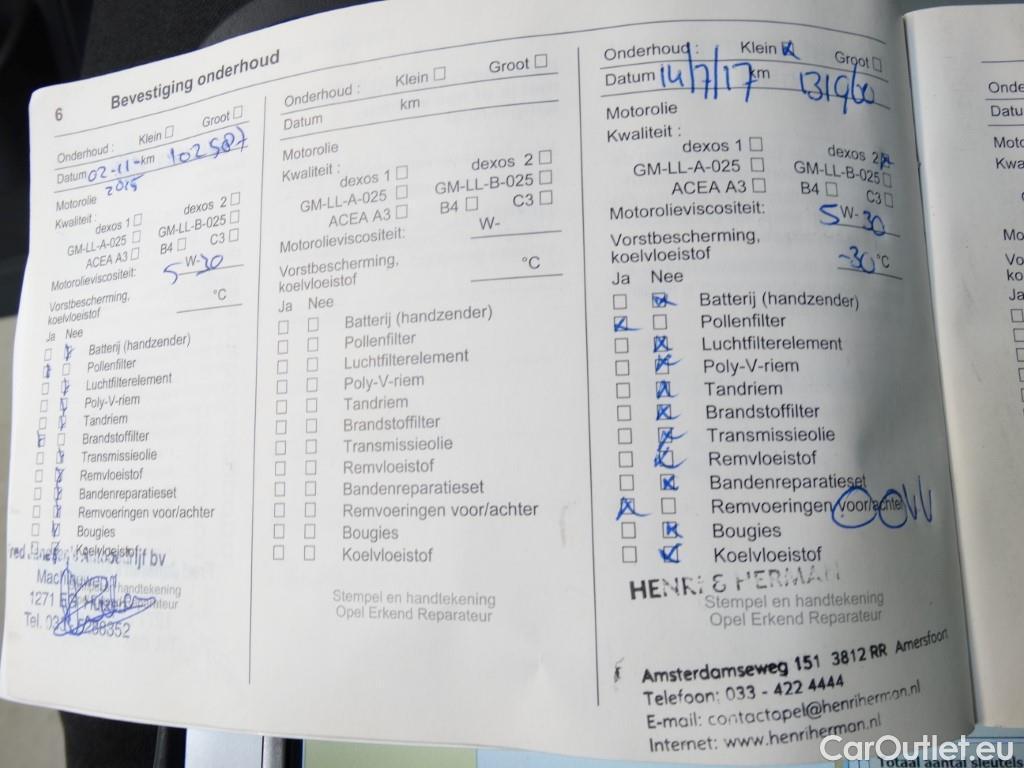 6 Bevestiging onderhoud
Onderhoud : Klein Groot
Datum 02-11- km 102587
2015
Motorolie
Kwaliteit :
dexos 1 dexos 2
GM-LL-A-025 GM-LL-B-025
ACEA A3 B4 C3
Motorolieviscositeit: 5 W- 30
Vorstbescherming,
koelvloeistof °C
Ja Nee
Batterij (handzender)
Pollenfilter
Luchtfilterelement
Poly-V-riem
Tandriem
Brandstoffilter
Transmissieolie
Remvloeistof
Bandenreparatieset
Remvoeringen voor/achter
Bougies
Koelvloeistof
bv
1271
Tel.
Onderhoud : Klein Groot
Datum km
Motorolie
Kwaliteit :
dexos 1 dexos 2
GM-LL-A-025 GM-LL-B-025
ACEA A3 B4 C3
Motorolieviscositeit: W-
Vorstbescherming,
koelvloeistof °C
Ja Nee
Batterij (handzender)
Pollenfilter
Luchtfilterelement
Poly-V-riem
Tandriem
Brandstoffilter
Transmissieolie
Remvloeistof
Bandenreparatieset
Remvoeringen voor/achter
Bougies
Koelvloeistof
Stempel en handtekening
Opel Erkend Reparateur
Onderhoud : Klein Groot
Datum 14/7/17 km 131960
Motorolie
Kwaliteit :
dexos 1 dexos 2
GM-LL-A-025 GM-LL-B-025
ACEA A3 B4 C3
Motorolieviscositeit: 5 W- 30
Vorstbescherming,
koelvloeistof -30 °C
Ja Nee
Batterij (handzender)
Pollenfilter
Luchtfilterelement
Poly-V-riem
Tandriem
Brandstoffilter
Transmissieolie
Remvloeistof
Bandenreparatieset
Remvoeringen voor/achter
Bougies
Koelvloeistof
HENRI & HERMAN
Stempel en handtekening
Opel Erkend Reparateur
Amsterdamseweg 151 3812 RR Amersfoort
Telefoon: 033 - 422 4444
E-mail: contactopel@henriherman.nl
Internet: www.henriherman.nl
Totaal aantal sleutels
CarOutlet.eu